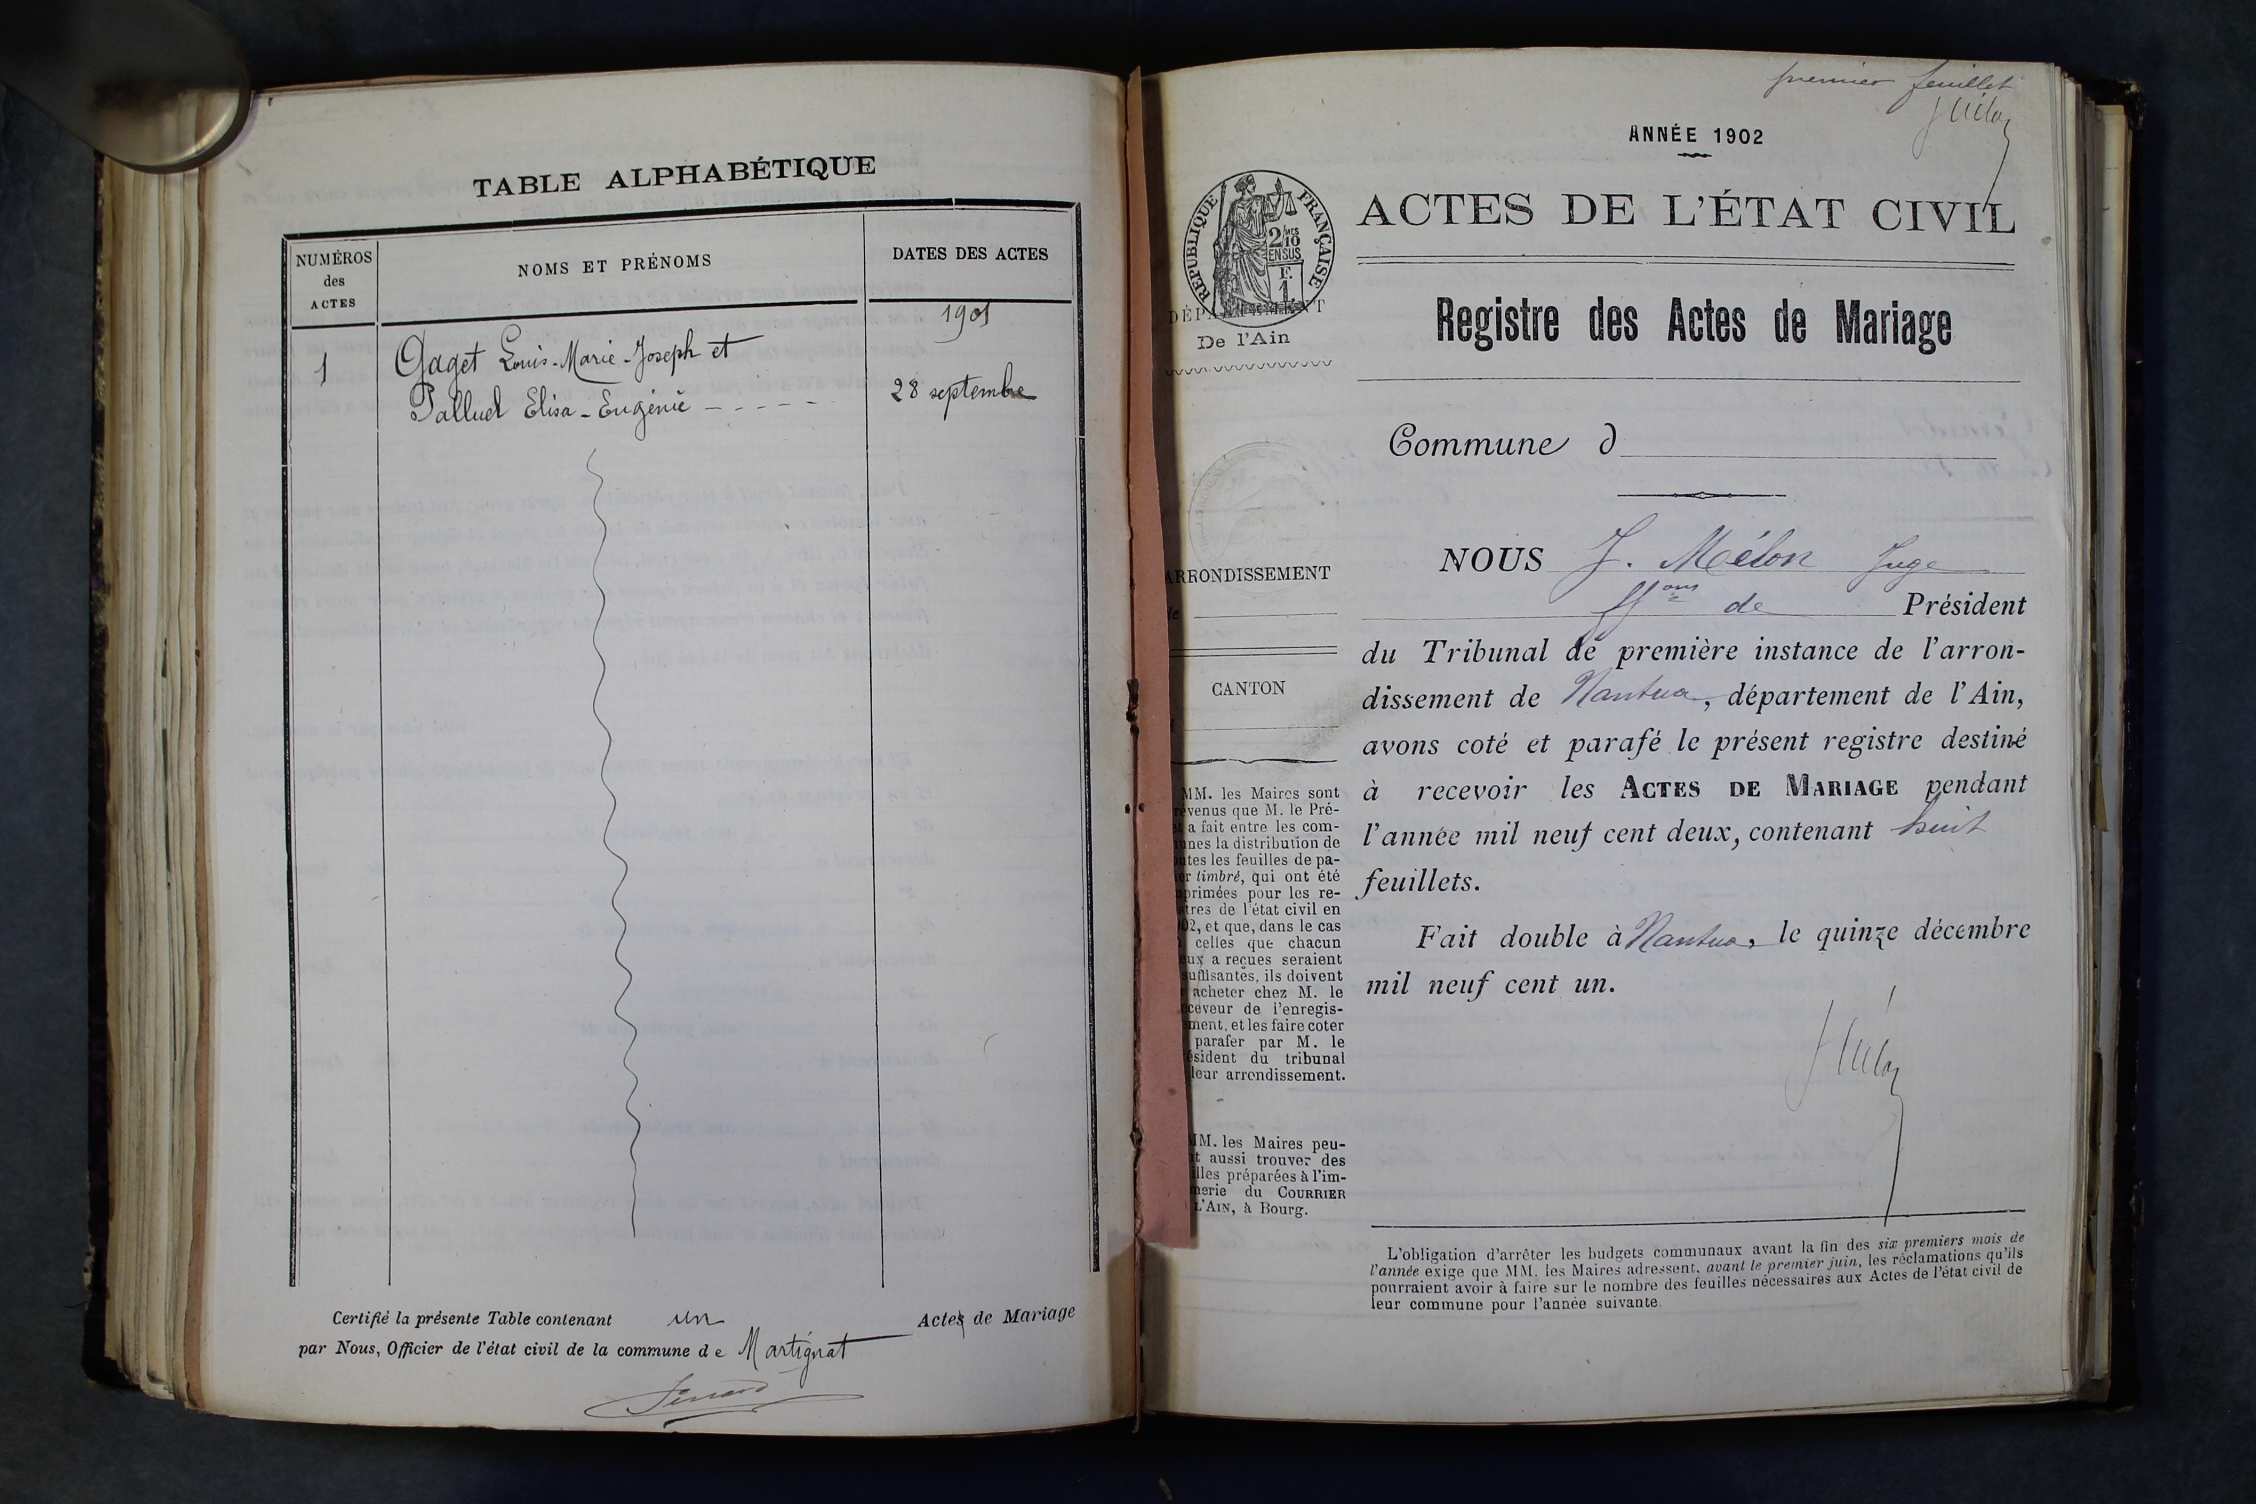 TABLE ALPHABÉTIQUE
NUMÉROS
des
ACTES
NOMS ET PRÉNOMS
DATES DES ACTES
1901
1
Gaget Louis-Marie-Joseph et
Palluel Elisa-Eugénie
28 septembre
Certifié la présente Table contenant un Actes de Mariage
par Nous, Officier de l'état civil de la commune de Martignat
premier feuillet
ANNÉE 1902
RÉPUBLIQUE FRANÇAISE
2/10
EN SUS
F.
1
DÉPARTEMENT
De l'Ain
ACTES DE L'ÉTAT CIVIL
Registre des Actes de Mariage
Commune d
ARRONDISSEMENT
CANTON
MM. les Maires sont
révenus que M. le Pré-
a fait entre les com-
unes la distribution de
utes les feuilles de pa-
er timbré, qui ont été
primées pour les re-
tres de l'état civil en
02, et que, dans le cas
celles que chacun
eux a reçues seraient
suffisantes, ils doivent
acheter chez M. le
ceveur de l'enregis-
ment, et les faire coter
parafer par M. le
ésident du tribunal
leur arrondissement.
MM. les Maires peu-
t aussi trouver des
illes préparées à l'im-
merie du COURRIER
L'AIN, à Bourg.
NOUS J. Mélon Juge
ffons de Président
du Tribunal de première instance de l'arron-
dissement de Nantua, département de l'Ain,
avons coté et parafé le présent registre destiné
à recevoir les ACTES DE MARIAGE pendant
l'année mil neuf cent deux, contenant huit
feuillets.
Fait double à Nantua, le quinze décembre
mil neuf cent un.
L'obligation d'arrêter les budgets communaux avant la fin des six premiers mois de
l'année exige que MM. les Maires adressent, avant le premier juin, les réclamations qu'ils
pourraient avoir à faire sur le nombre des feuilles nécessaires aux Actes de l'état civil de
leur commune pour l'année suivante.